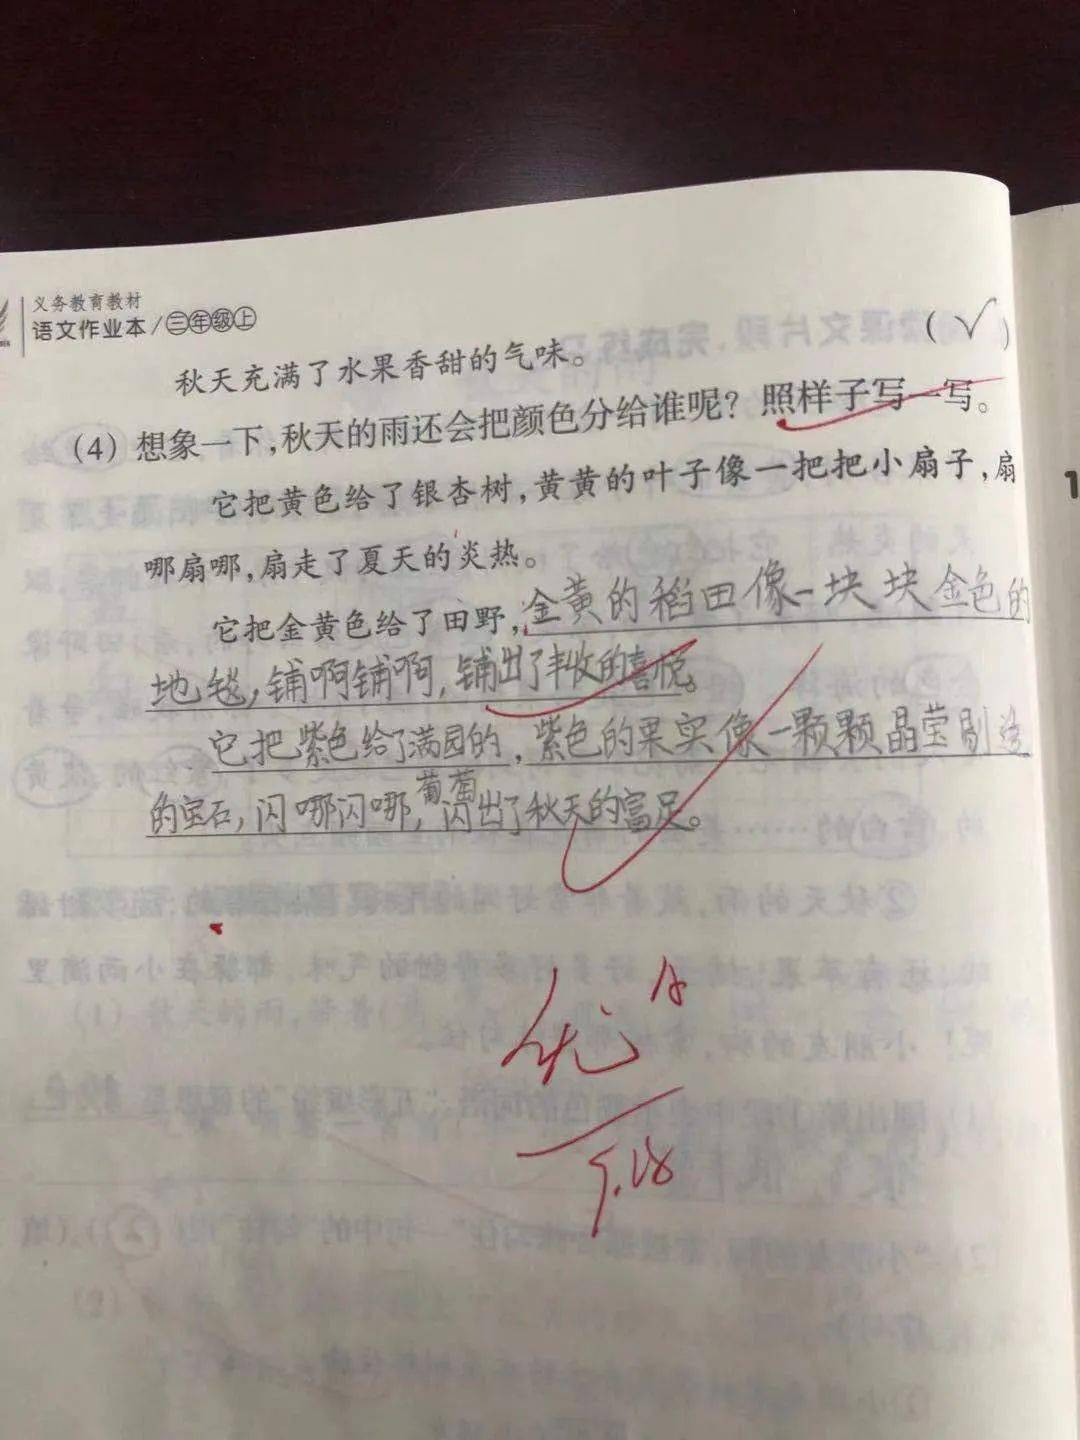 义务教育教材
语文作业本/三年级上
秋天充满了水果香甜的气味。 (√)
(4) 想象一下,秋天的雨还会把颜色分给谁呢?照样子写一写。
它把黄色给了银杏树,黄黄的叶子像一把把小扇子,扇
哪扇哪,扇走了夏天的炎热。
它把金黄色给了田野,金黄的稻田像一块块金色的
地毯,铺啊铺啊,铺出了丰收的喜悦。
它把紫色给了满园的,紫色的果实像一颗颗晶莹剔透
葡萄
的宝石,闪哪闪哪,闪出了秋天的富足。
优
9.28